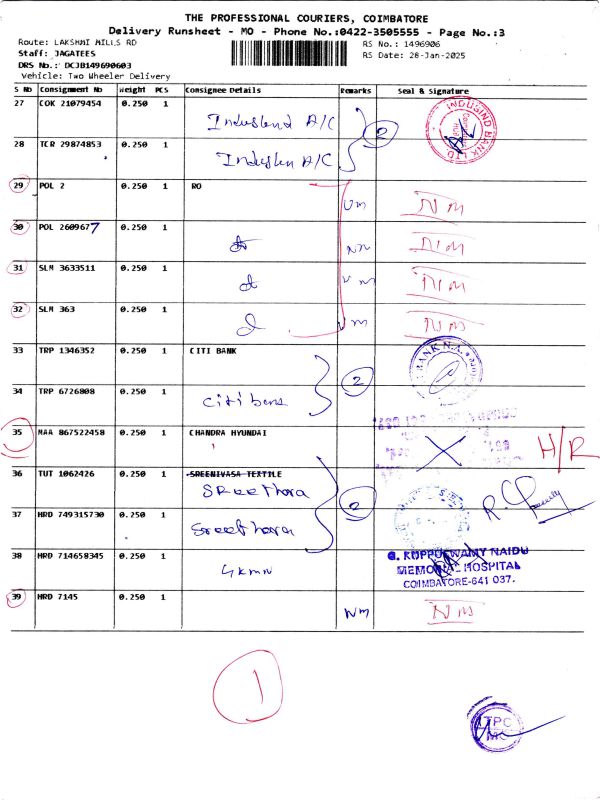 THE PROFESSIONAL COURIERS, COIMBATORE
Delivery Runsheet - MO - Phone No.:0422-3505555 - Page No.:3
Route: LAKSHMI MILLS RD
RS No.: 1496906
Staff: JAGATEES
RS Date: 28-Jan-2025
DRS No.: DCJB149690603
Vehicle: Two Wheeler Delivery
S No Consignment No Weight PCS Consignee Details Remarks Seal & Signature
27 COK 21079454 0.250 1 Induslend A/C
28 TCR 29874853 0.250 1 Induslen A/C
2
INDUSIND BANK LTD
29 POL 2 0.250 1 RO Nm
30 POL 2609677 0.250 1 Nm
31 SLM 3633511 0.250 1 Nm
32 SLM 363 0.250 1 Nm
33 TRP 1346352 0.250 1 CITI BANK
34 TRP 6726808 0.250 1 Citi bank
2
BANK N.A.
35 MAA 867522458 0.250 1 CHANDRA HYUNDAI H/R
36 TUT 1062426 0.250 1 SREENIVASA TEXTILE
SReethora
37 HRD 749315730 0.250 1 Sreethora
2
38 HRD 714658345 0.250 1 GKMN
G. KUPPUSWAMY NAIDU
MEMORIAL HOSPITAL
COIMBATORE-641 037.
39 HRD 7145 0.250 1 Nm Nm
1
TPC
MO